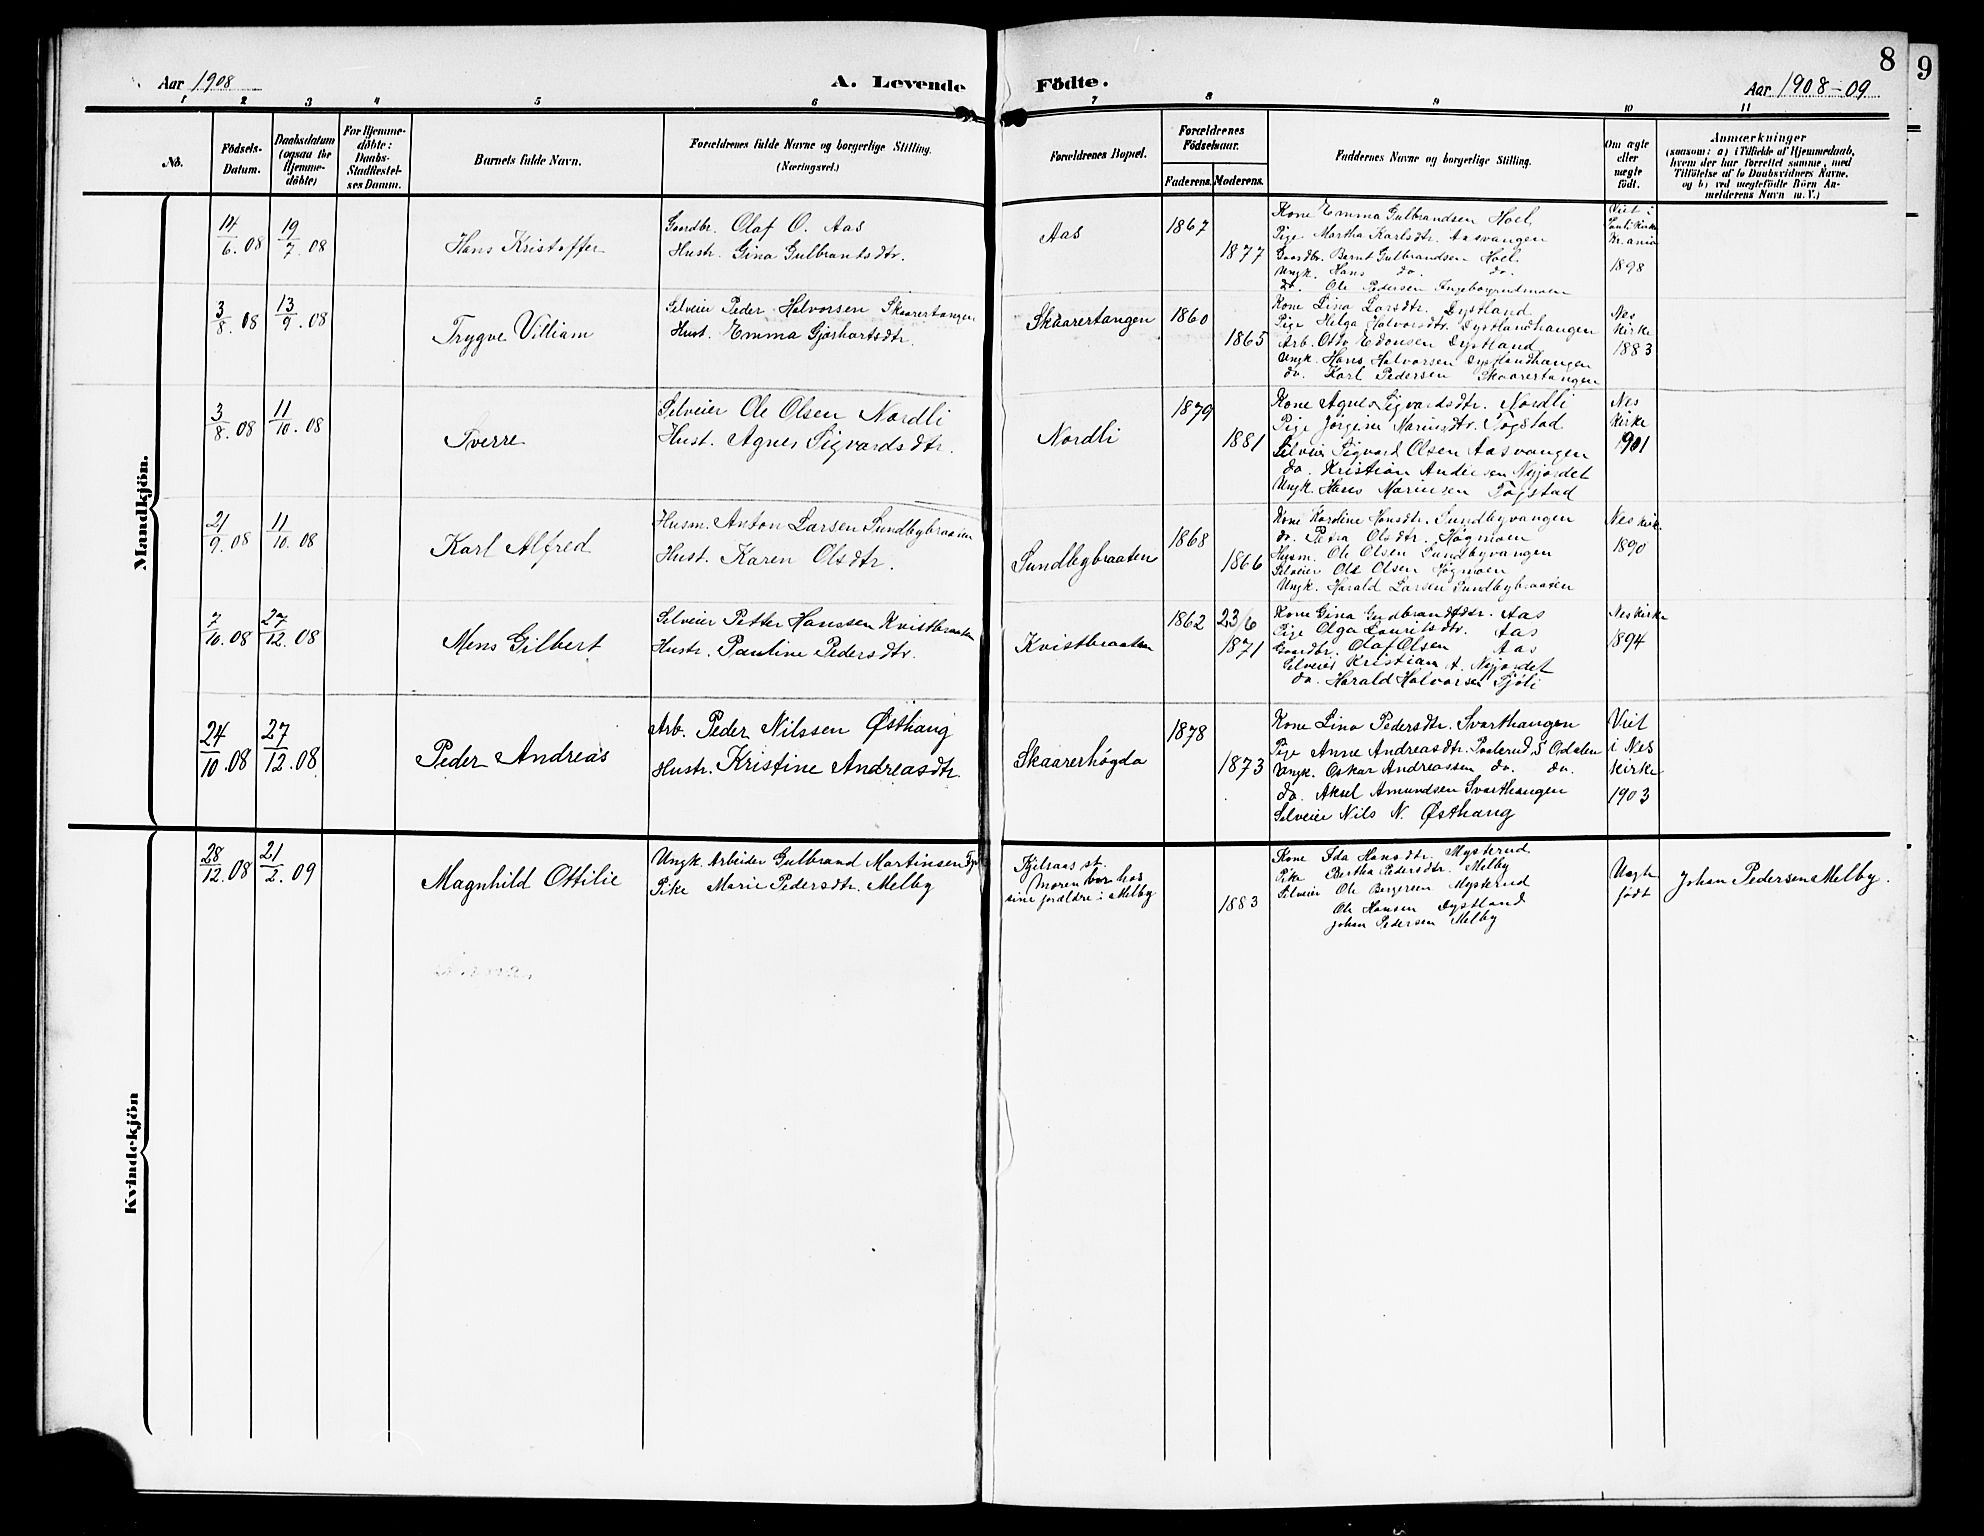 8
9
Aar 1908
A. Levende
Födte.
Aar 1908-09
1 2 3 4 5 6 7 8 9 10 11
No.
Födsels-
Datum.
Daabsdatum
(ogsaa for
Hjemme-
döbte)
For Hjemme-
döbte:
Daabs-
Stadfæstel-
ses Datum.
Barnets fulde Navn.
Forældrenes fulde Navne og borgerlige Stilling.
(Næringsvei.)
Forældrenes Bopæl.
Forældrenes
Födselsaar.
Faderens. Moderens.
Faddernes Navne og borgerlige Stilling.
Om ægte
eller
uægte
födt.
Anmærkninger
(saasom: a) i Tilfælde af Hjemmedaab,
hvem der har forrettet samme, med
Tilföielse af to Daabsvidners Navne.
og b) ved uægtefödte Börn An-
melderens Navn m. V.)
Mandkjön.
14/6.08
19/7.08
Hans Kristoffer
Gaardbr. Olaf O. Aas
Hustr. Gina Gulbrantsdtr.
Aas
1867
1877
Kone Emma Gulbrandsen Hoel
Pige Martha Karlsdtr. Aasvangen
Gaardbr. Bernt Gulbrandsen Hoel
Ungk. Hans do. do.
do. Ole Pedersen
Viet i
Kr.ania
1898
3/8.08
13/9.08
Trygve Villiam
Selveier Peder Halvorsen Skaarertangen
Hust. Emma Gjærhartsdtr.
Skaarertangen
1860
1865
Kone Lina Larsdtr. Dystland
Pige Helga Halvorsdtr. Dystlandhangen
Arb. Otto Edvnsen Dystland
Ungk. Hans Halvorsen Dystlandhangen
do. Karl Pedersen Skaarertangen
Nes
Kirke
1883
3/8.08
11/10.08
Sverre
Selveier Ole Olsen Nordli
Hust. Agnes Sigvardsdtr.
Nordli
1879
1881
Kone Agnes Sigvardsdtr. Nordli
Pige Jørgine Mariusdtr. Togstad
Selveier Sigvard Olsen Aasvangen
do. Kristian Andersen Nyjordet
Ungk. Hans Mariusen Togstad
Nes
Kirke
1901
21/9.08
11/10.08
Karl Alfred
Husm. Anton Larsen Sundbybraaten
Hust. Karen Olsdtr.
Sundbybraaten
1868
1866
Kone Karoline Hansdtr. Sundbyvangen
do. Petra Olsdtr. Høgmoen
Husm. Ole Olsen Sundbyvangen
Selveier Ole Olsen Høgmoen
Ungk. Harald Larsen Sundbybraaten
Nes Kirk.
1890
7/10.08
27/12.08
Mens Gilbert
Selveier Petter Hanssen Kvistbraaten
Hustr. Pauline Pedersdtr.
Kvistbraaten
1862
23/6
1871
Kone Gina Gudbrandsdtr. Aas
Pige Olga Lauritsdtr. Aas
Gaardbr. Olaf Olsen Aas
Selveier Kristian A. Nyjordet
do. Harald Halvorsen Fjöli
Nes kirke
1894
24/10.08
27/12.08
Peder Andreas
Arb. Peder Nilssen Østhaug
Hustr. Kristine Andreasdtr.
Skaarerhøgda
1878
1873
Kone Lina Pedersdtr. Svarthaugen
Pige Anne Andreasdtr. Paalerud S Odalen
Ungk. Oskar Andreassen do. do.
do. Aksel Amundsen Svarthaugen
Selveier Nils N. Østhaug
Viet
i Nes
Kirke
1903
Kvindekjön
28/12.08
21/2.09
Magnhild Ottilie
Ungk. Arbeider Gulbrand Martinsen
Pike Marie Pedersdtr. Melby
Kjelsaas st.
Moren bor hos
sine forældre i Melby
1883
Kone Ida Hansdtr. Mysterud
Pike Bertha Pedersdtr. Melby
Selveier Ole Borgersen Mysterud
Ole Hansen Dystland
Johan Pedersen Melby
Uægte
født
Johan Pedersen Melby.